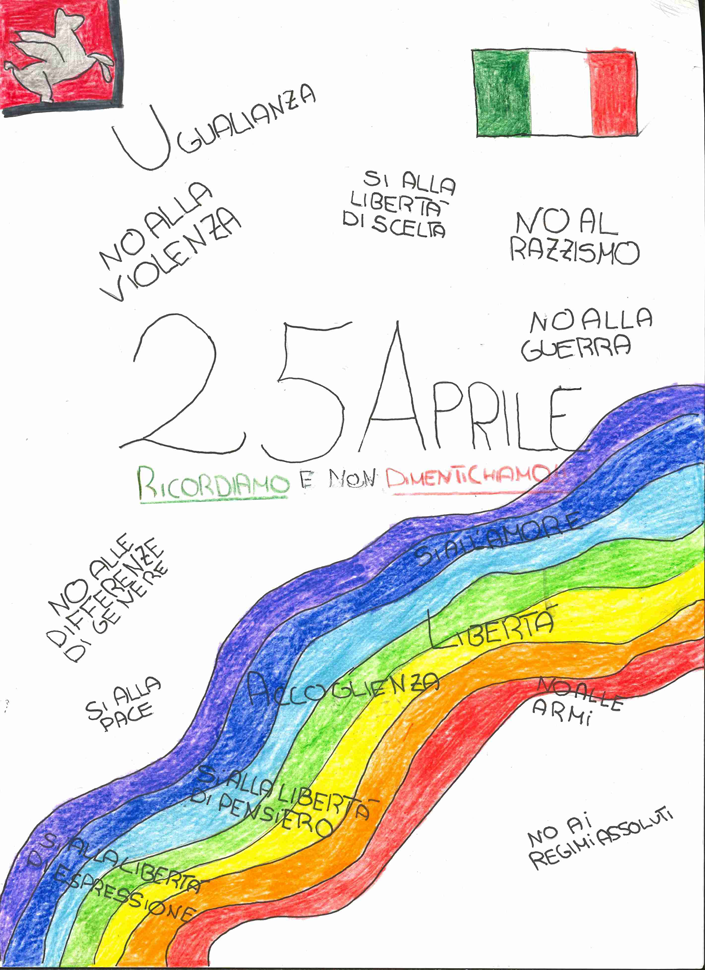 UGUALIANZA
NO ALLA
VIOLENZA
SI ALLA
LIBERTÀ
DI SCELTA
NO AL
RAZZISMO
NO ALLA
GUERRA
25 APRILE
RICORDIAMO E NON DIMENTICHIAMO!
SI ALL'AMORE
NO ALLE
DIFFERENZE
DI GENERE
LIBERTÀ
SI ALLA
PACE
ACCOGLIENZA
NO ALLE
ARMI
SI ALLA LIBERTÀ
DI PENSIERO
NO AI
REGIMI ASSOLUTI
SI ALLA LIBERTÀ
DI ESPRESSIONE